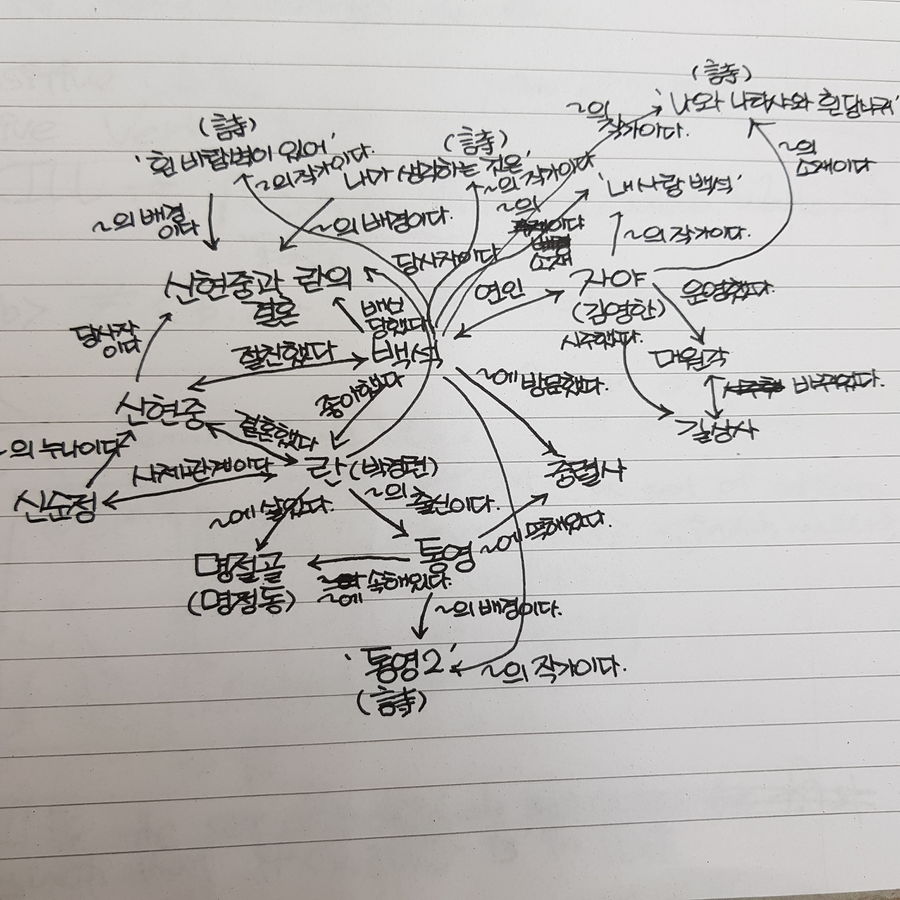 (詩)
'나와 나타샤와 흰 당나귀'
~의
작가이다.
(詩)
'흰 바람벽이 있어'
(詩)
~의 작가이다.
내가 생각하는 것은'
~의 작가이다
~의
소재이다
'내 사랑 백석'
~의 배경
이다
~의 배경이다.
~의
이다
소재
~의 작가이다.
당사자이다
신현중과 란의
결혼
연인
자야
(김영한)
운영했다.
배신
당했다
시주했다.
당사자
이다
절친했다
백석
대원각
바뀌었다.
좋아했다
~에 방문했다.
신현중
결혼했다
길상사
~의 누나이다
사제관계이다
란(박경련)
충렬사
신순정
~에 살았다.
~의 출신이다.
통영
~에 속해있다.
명절골
(명정동)
~에 속해있다.
~의 배경이다.
'통영2'
(詩)
~의 작가이다.